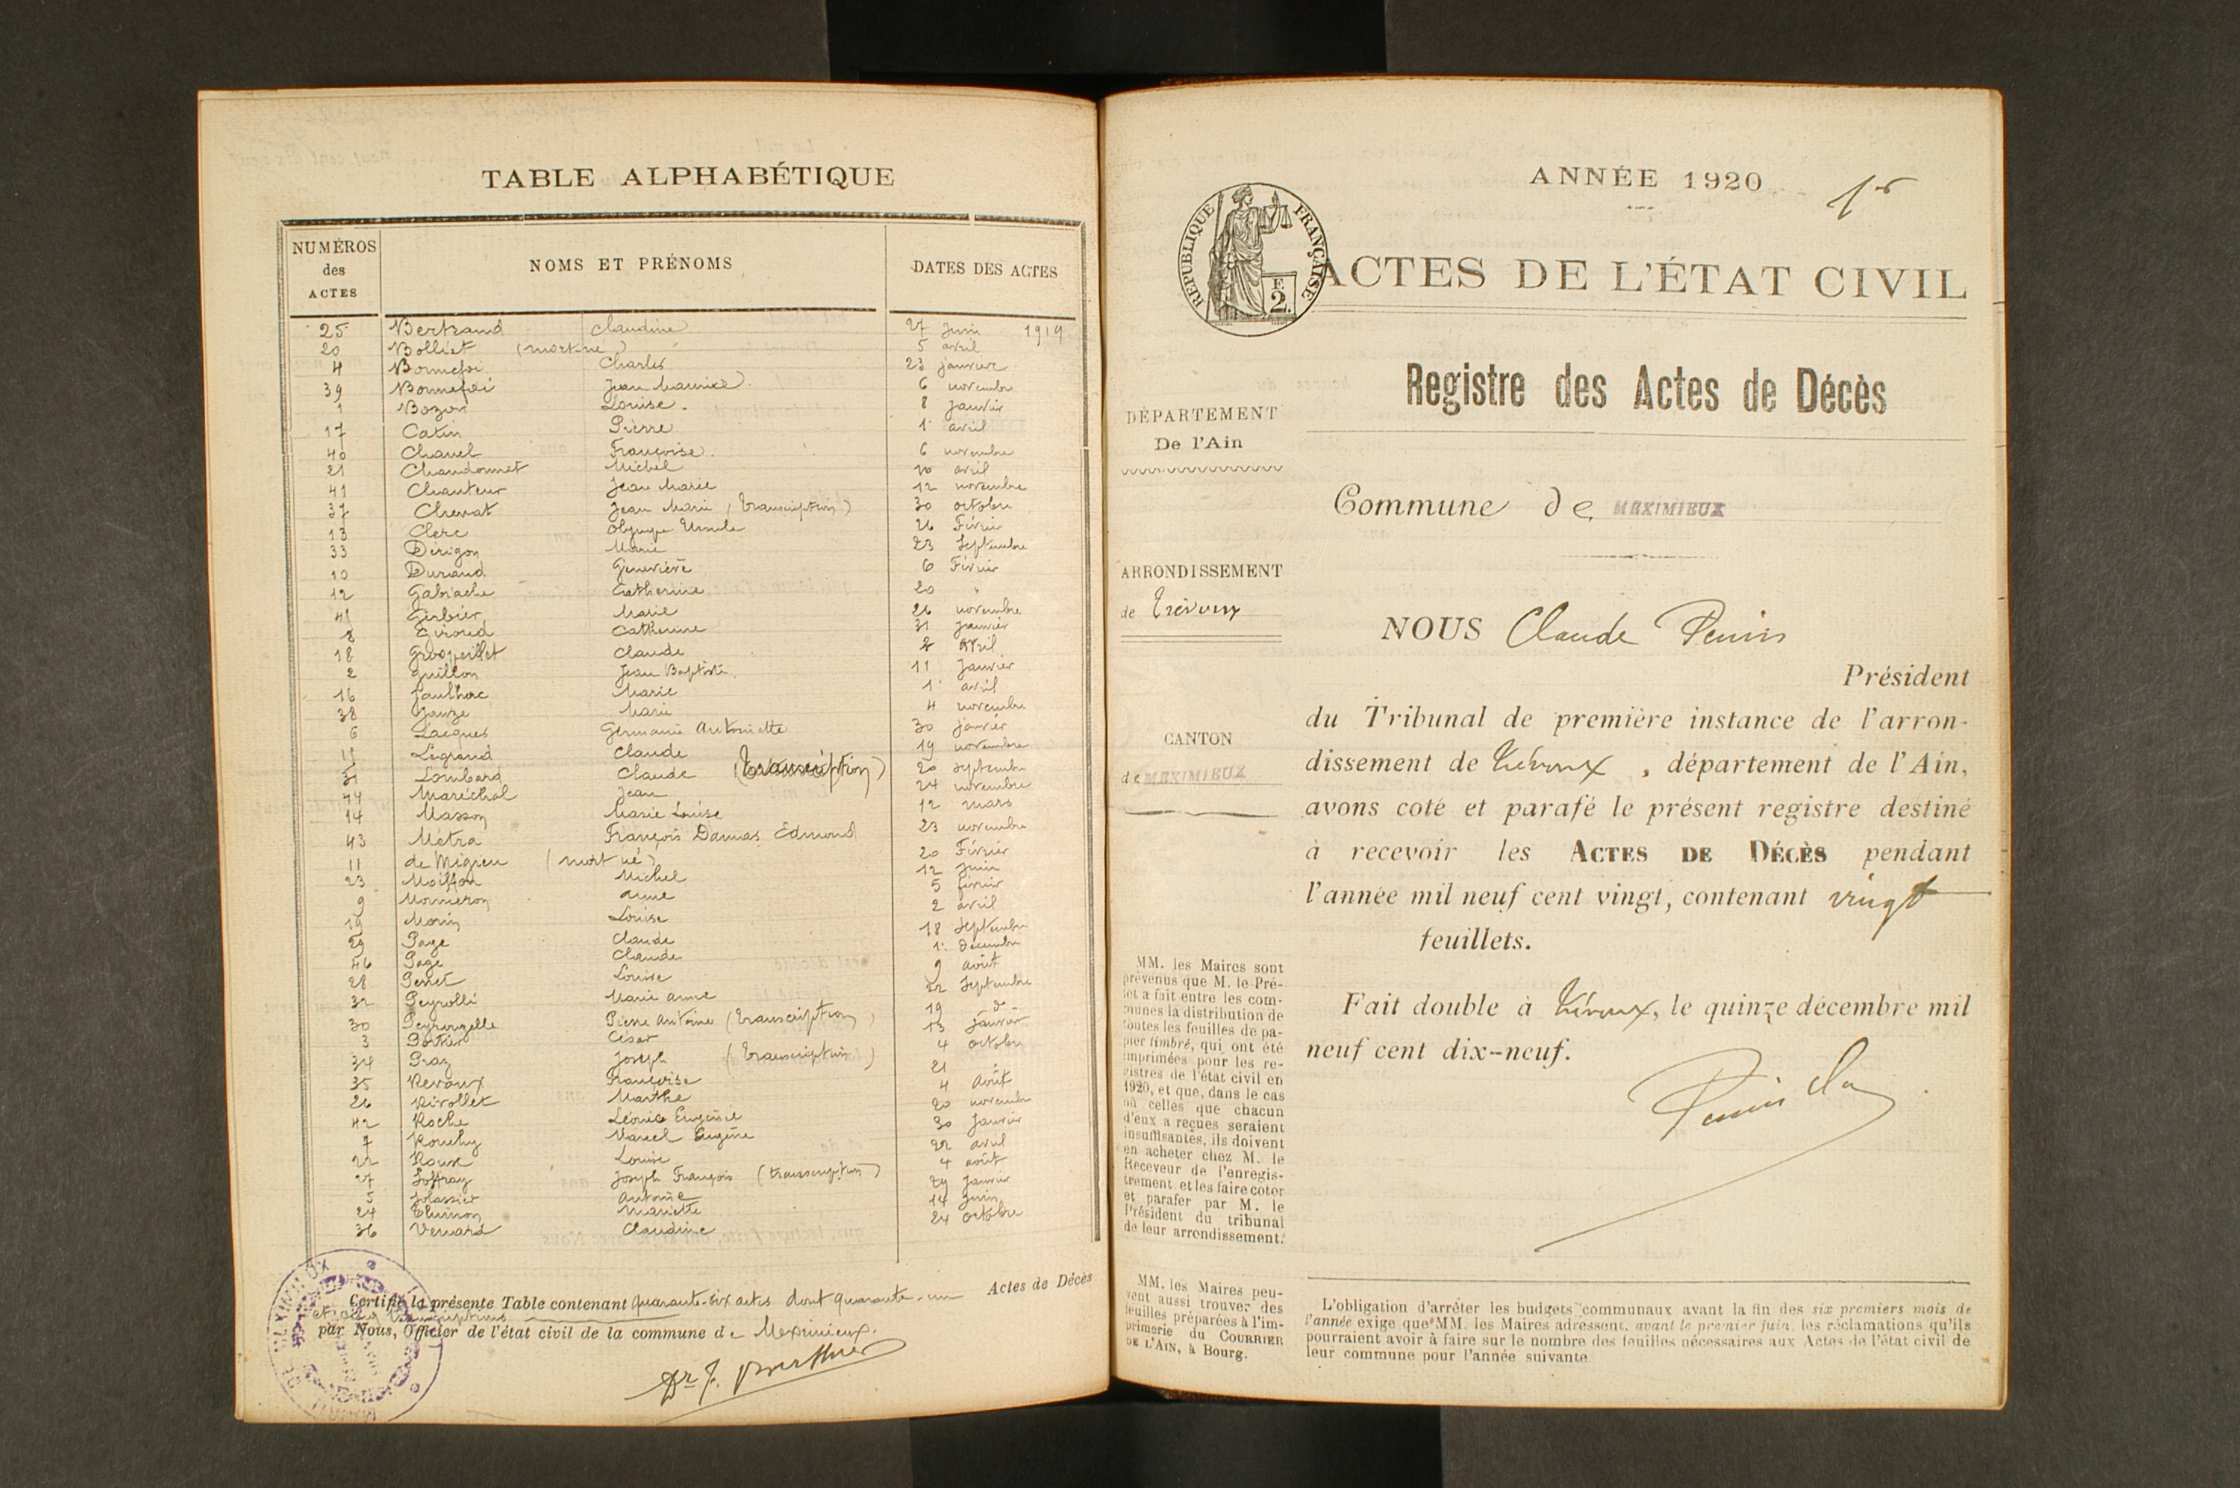 TABLE ALPHABÉTIQUE
NUMÉROS des ACTES NOMS ET PRÉNOMS DATES DES ACTES
25 Bertrand Claudine 27 Juin 1919
20 Bolliet (mort-né) 5 avril
4 Bonnefoi Charles 23 janvier
39 Bonnefoi Jean Maurice 6 novembre
1 Bozon Louise. 8 janvier
17 Catin Pierre 1er avril
40 Chanel Françoise. 6 novembre
21 Chaudonnet Michel 20 avril
41 Chanteur Jean Marie 12 novembre
37 Chevat Jean Marie (transcription) 30 octobre
13 Clerc Olympe Ursule 26 Février
33 Dérigon Marie 23 Septembre
10 Durand Geneviève 6 Février
12 Gabiache Catherine 20 "
Gerbier Marie 26 novembre
8 Giroud Catherine 31 janvier
18 Grospeillet Claude 2 avril
2 Guillon Jean Baptiste 11 Janvier
16 Jaulhac Marie 1er avril
38 Jauze Marie 4 novembre
6 Lacques Germaine Antoinette 30 janvier
15 Legrand Claude 19 novembre
31 Lombard Claude (transcription) 20 septembre
44 Maréchal Jean 24 novembre
14 Masson Marie Louise 12 mars
43 Métra François Damas Edmond 23 novembre
11 de Migieu (mort né) 20 Février
23 Moiffon Michel 12 juin
9 Monneron Anne 5 février
19 Morin Louise 2 avril
29 Page Claude 18 Septembre
46 Page Claude 1er Décembre
28 Perret Louise 9 août
32 Peyrolli Marie Anne 22 Septembre
30 Peyrouzelle Pierre Antoine (transcription) 19 do
3 Portier César 13 Janvier
34 Praz Joseph (transcription) 4 octobre
35 Revaux Françoise 21
26 Rivollet Marthe 4 Août
42 Roche Léonie Eugénie 20 novembre
7 Rouchy Marcel Eugène 30 Janvier
22 Rousse Louise 22 avril
27 Soffray Joseph François (transcription) 4 août
5 Solassier Antoine 29 janvier
24 Thuinon Mariette 14 Juin
36 Venard Claudine 24 octobre
Certifié la présente Table contenant quarante-six actes dont quarante-un Actes de Décès
et cinq transcriptions
par Nous, Officier de l'état civil de la commune de Meximieux.
Dr F. Berthier
ANNÉE 1920
RÉPUBLIQUE FRANÇAISE
E 2.
ACTES DE L'ÉTAT CIVIL
Registre des Actes de Décès
DÉPARTEMENT
De l'Ain
Commune de MEXIMIEUX
ARRONDISSEMENT
de Trévoux
CANTON
de MEXIMIEUX
NOUS Claude Perrin
Président
du Tribunal de première instance de l'arron-
dissement de Trévoux, département de l'Ain,
avons coté et parafé le présent registre destiné
à recevoir les ACTES DE DÉCÈS pendant
l'année mil neuf cent vingt, contenant vingt
feuillets.
Fait double à Trévoux, le quinze décembre mil
neuf cent dix-neuf.
Perrin Cla
MM. les Maires sont
prévenus que M. le Pré-
fet a fait entre les com-
munes la distribution de
toutes les feuilles de pa-
pier timbré, qui ont été
imprimées pour les re-
gistres de l'état civil en
1920, et que, dans le cas
où celles que chacun
d'eux a reçues seraient
insuffisantes, ils doivent
en acheter chez M. le
Receveur de l'enregis-
trement et les faire coter
et parafer par M. le
Président du tribunal
de leur arrondissement.
MM. les Maires peu-
vent aussi trouver des
feuilles préparées à l'im-
primerie du COURRIER
DE L'AIN, à Bourg.
L'obligation d'arrêter les budgets communaux avant la fin des six premiers mois de
l'année exige que MM. les Maires adressent, avant le premier juin, les réclamations qu'ils
pourraient avoir à faire sur le nombre des feuilles nécessaires aux Actes de l'état civil de
leur commune pour l'année suivante